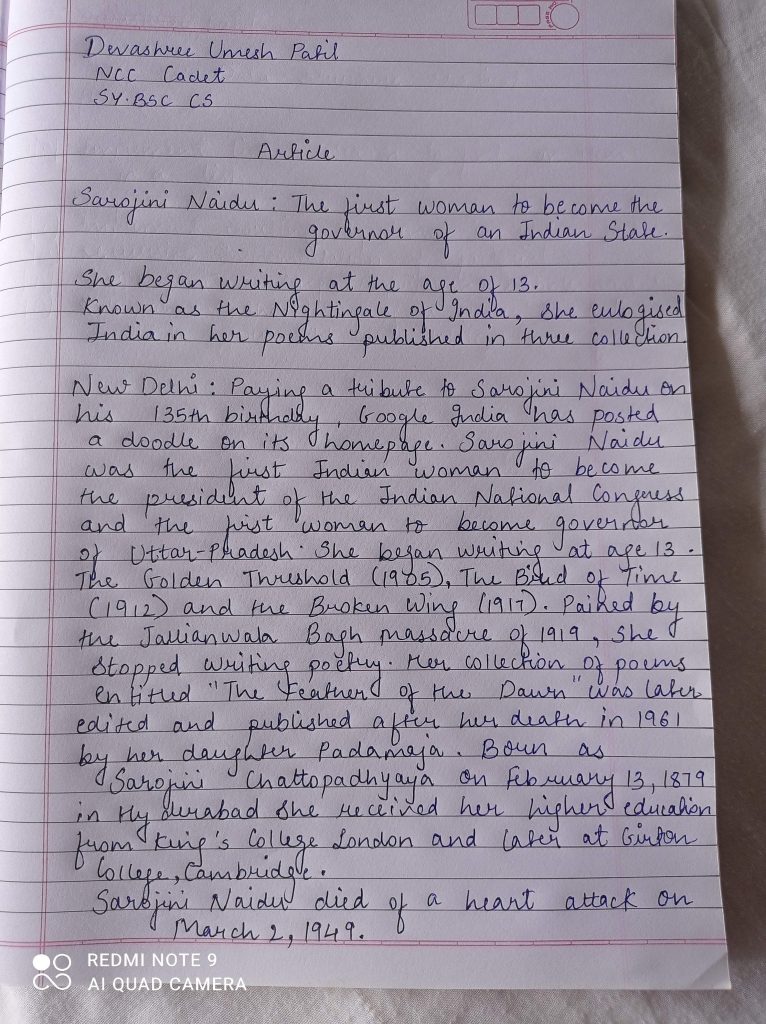 Devashree Umesh Patil
NCC Cadet
SY.BSC CS
Article
Sarojini Naidu : The first woman to become the
governor of an Indian State.
She began writing at the age of 13.
Known as the Nightingale of India, she eulogised
India in her poems published in three collection
New Delhi : Paying a tribute to Sarojini Naidu on
his 135th birthday, Google India has posted
a doodle on its homepage. Sarojini Naidu
was the first Indian woman to become
the president of the Indian National Congress
and the first woman to become governor
of Uttar-Pradesh. She began writing at age 13.
The Golden Threshold (1905), The Bird of Time
(1912) and the Broken Wing (1917). Pained by
the Jallianwala Bagh massacre of 1919, she
stopped writing poetry. Her collection of poems
entitled "The Feather of the Dawn" was later
edited and published after her death in 1961
by her daughter Padamaja. Born as
Sarojini Chattopadhyaya on February 13, 1879
in Hyderabad she received her higher education
from King's College London and later at Girton
College, Cambridge.
Sarojini Naidu died of a heart attack on
March 2, 1949.
REDMI NOTE 9
AI QUAD CAMERA